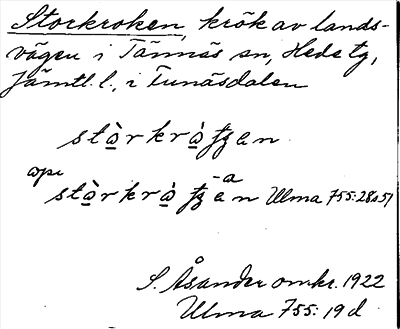 Storkroken, krök av lands-
vägen i Tännäs sn, Hede tg,
Jämtl. l., i Funäsdalen
stò̱rkrò̱ʈʂen
stò̱rkrò̱ʈʂ-an Ulma 755:28 s 57
S. Åsander omkr. 1922
Ulma 755:19 d